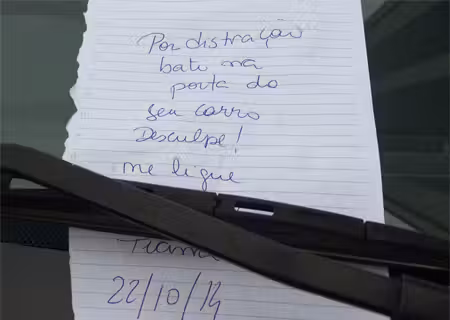 Por distração
bati na
porta do
seu carro
Desculpe!
me ligue
22/10/14